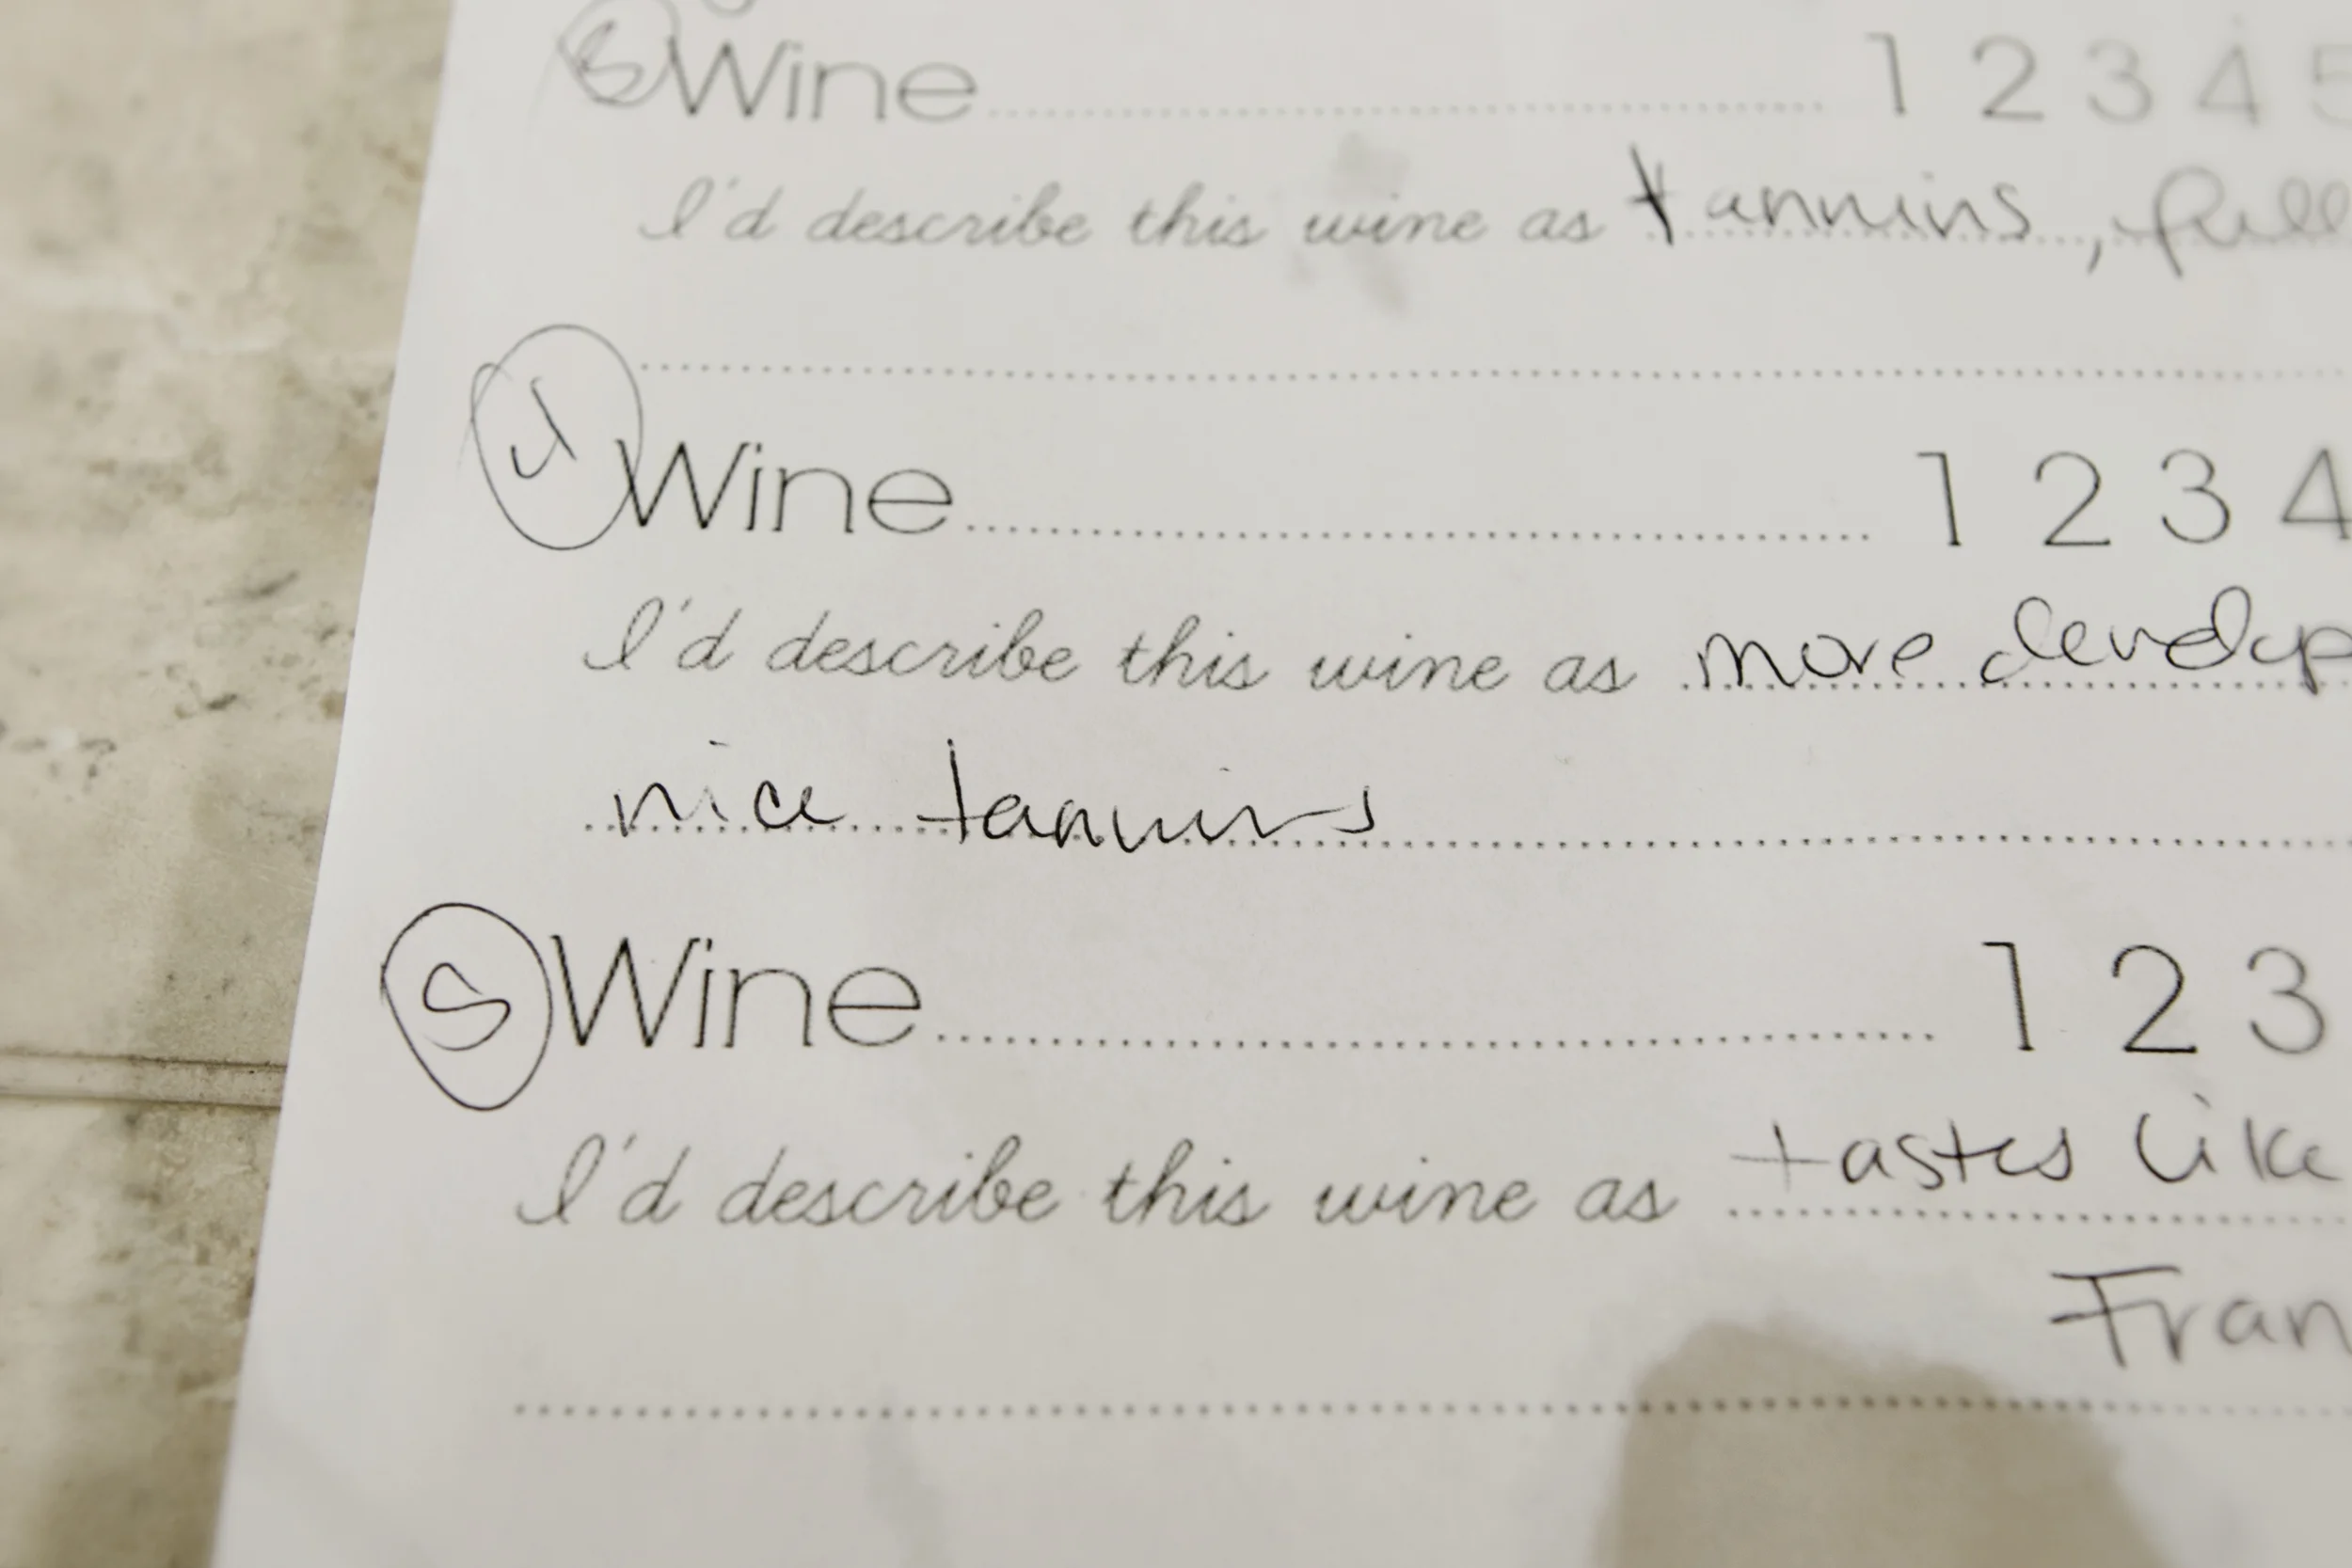 Wine 1 2 3 4 5
I'd describe this wine as tannins, full
4 Wine 1 2 3 4
I'd describe this wine as more develop
nice tannins
5 Wine 1 2 3
I'd describe this wine as tastes like
Fran